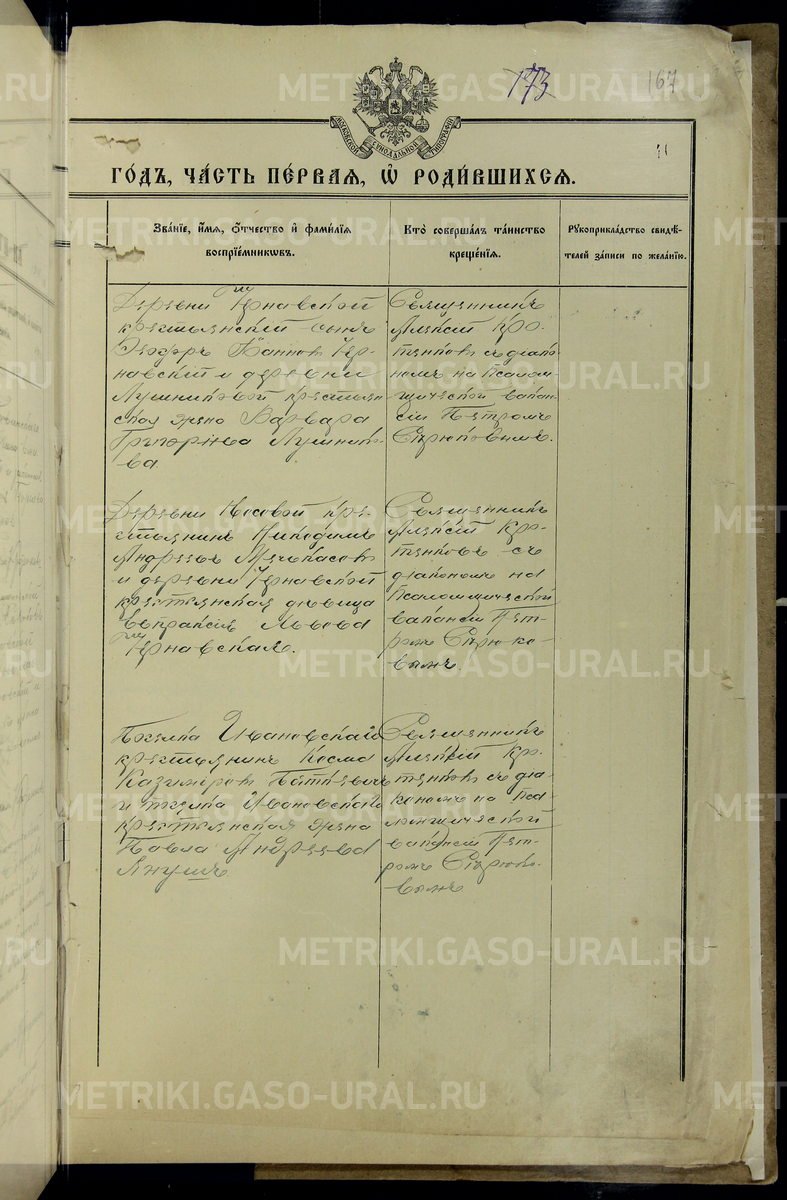 173
167
МОСКОВСКОЙ СѴНОДАЛЬНОЙ ТИПОГРАФІИ
ГО́ДЪ, ЧА́СТЬ ПЕ́РВАЯ, Ѡ҆ РОДИ́ВШИХСЯ.
Зва́нїе, и҆́мя, ѻ҆́тчество и҆ фами́лїя
воспрїе́мникѡвъ.
Кто̀ соверша́лъ та́инство
креще́нїя.
Рꙋкоприкла́дство свидѣ́-
телей за́писи по жела́нїю.
Деревни Чернавской
крестьянскій сынъ
Ѳеодоръ Чер-
навскій и деревни
Лушниковой крестьян-
ская жена Варвара
Григорьева Лушнико-
ва
Священникъ
Алексій Кро-
тковъ съ діако-
номъ на Псалом-
щической вакан-
сіи Петромъ
Сѣрюковымъ.
Деревни Носовой кре-
стьянинъ Никодимъ
Андреевъ
и деревни Чернавской
крестьянская дѣвица
Евпраксія Львова
Чернавская.
Священникъ
Алексій Кро-
тковъ съ
діакономъ на
Псаломщической
вакансіи Пет-
ромъ Сѣрюко-
вымъ.
Ивановскаго
крестьянинъ Косма
Казиміровъ
и Ивановскаго
крестьянская жена
Павла Андреева
Янушъ
Священникъ
Алексій Кро-
тковъ съ діа-
кономъ на Пса-
ломщической
вакансіи Пет-
ромъ Сѣрюко-
вымъ.
METRIKI.GASO-URAL.RU